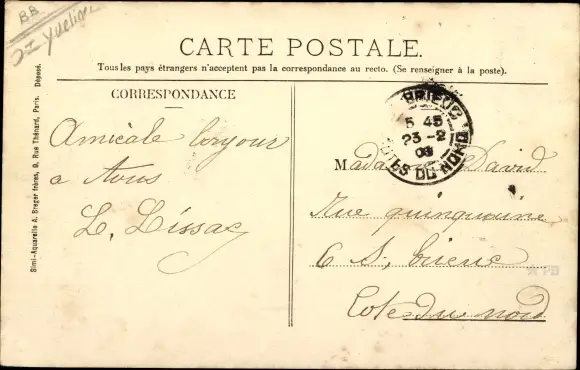 BB
22 Yvelines
CARTE POSTALE.
Tous les pays étrangers n'acceptent pas la correspondance au recto. (Se renseigner à la poste).
CORRESPONDANCE
Amicale bonjour
a tous
L. Lissac
Simi-Aquarelle A. Breger frères, 9, Rue Thénard, Paris. Déposé.
BRIEUC
5 45
23 -2
COTES DU NORD
Madame David
Rue quinquaine
6 St brieuc
Cote du nord
PB